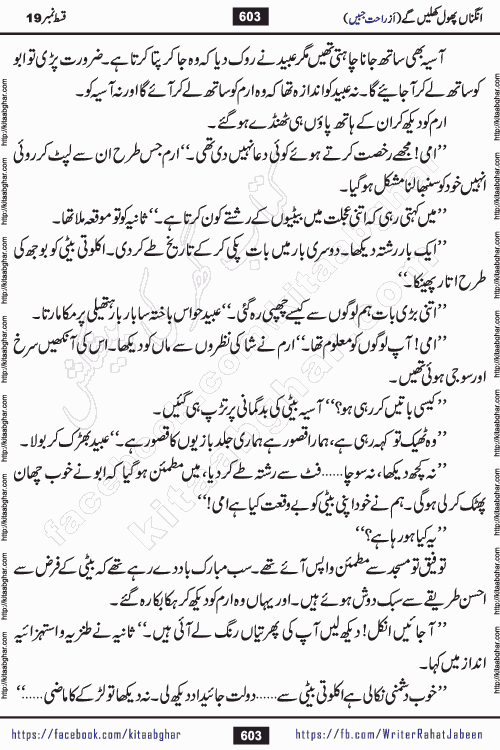 انگناں پھول کھلیں گے (از راحت جبیں)
603
قسط نمبر 19
آسیہ بھی ساتھ جانا چاہتی تھیں مگر عبید نے روک دیا کہ وہ جا کر پتا کرتا ہے۔ ضرورت پڑی تو ابو
کو ساتھ لے کر آ جائیے گا۔ نہ عبید کو اندازہ تھا کہ وہ ارم کو ساتھ لے کر آئے گا اور نہ آسیہ کو۔
ارم کو دیکھ کر ان کے ہاتھ پاؤں ہی ٹھنڈے ہو گئے۔
’’امی! مجھے رخصت کرتے ہوئے کوئی دعا نہیں دی تھی۔‘‘ ارم جس طرح ان سے لپٹ کر روئی
انہیں خود کو سنبھالنا مشکل ہو گیا۔
’’میں کہتی رہی کہ اتنی عجلت میں بیٹیوں کے رشتے کون کرتا ہے۔‘‘ ثانیہ کو تو موقعہ ملا تھا۔
’’ایک بار رشتہ دیکھا۔ دوسری بار میں بات پکی کر کے تاریخ طے کر دی۔ اکلوتی بیٹی کو بوجھ کی
طرح اتار پھینکا۔‘‘
’’اتنی بڑی بات ہم لوگوں سے کیسے چھپی رہ گئی۔‘‘ عبید حواس باختہ سا بار بار ہتھیلی پر مکا مارتا۔
’’امی! آپ لوگوں کو معلوم تھا۔‘‘ ارم نے شاکی نظروں سے ماں کو دیکھا۔ اس کی آنکھیں سرخ
اور سوجی ہوئی تھیں۔
’’کیسی باتیں کر رہی ہو؟‘‘ آسیہ بیٹی کی بدگمانی پر تڑپ ہی گئیں۔
’’وہ ٹھیک تو کہہ رہی ہے، ہمارا قصور ہے ہماری جلد بازیوں کا قصور ہے۔‘‘ عبید بھڑک کر بولا۔
’’نہ کچھ دیکھا، نہ سوچا……فٹ سے رشتہ طے کر دیا، میں مطمئن ہو گیا کہ ابو نے خوب چھان
پھٹک کر لی ہو گی۔ ہم نے خود اپنی بیٹی کو بے وقعت کیا ہے امی!‘‘
’’یہ کیا ہو رہا ہے؟‘‘
توفیق تو مسجد سے مطمئن واپس آئے تھے۔ سب مبارک باد دے رہے تھے کہ بیٹی کے فرض سے
احسن طریقے سے سبک دوش ہوئے ہیں۔ اور یہاں وہ ارم کو دیکھ کر ہکا بکا رہ گئے۔
’’آ جائیں انکل! دیکھ لیں آپ کی پھرتیاں رنگ لے آئی ہیں۔‘‘ ثانیہ نے طنزیہ و استہزائیہ
انداز میں کہا۔
’’خوب دشمنی نکالی ہے اکلوتی بیٹی سے……دولت جائیداد دیکھ لی۔ نہ دیکھا تو لڑکے کا ماضی……‘‘
https://facebook.com/kitaabghar
603
https://fb.com/WriterRahatJabeen
http://kitaabghar.com
kitaabghar.com
facebook.com/kitaabghar